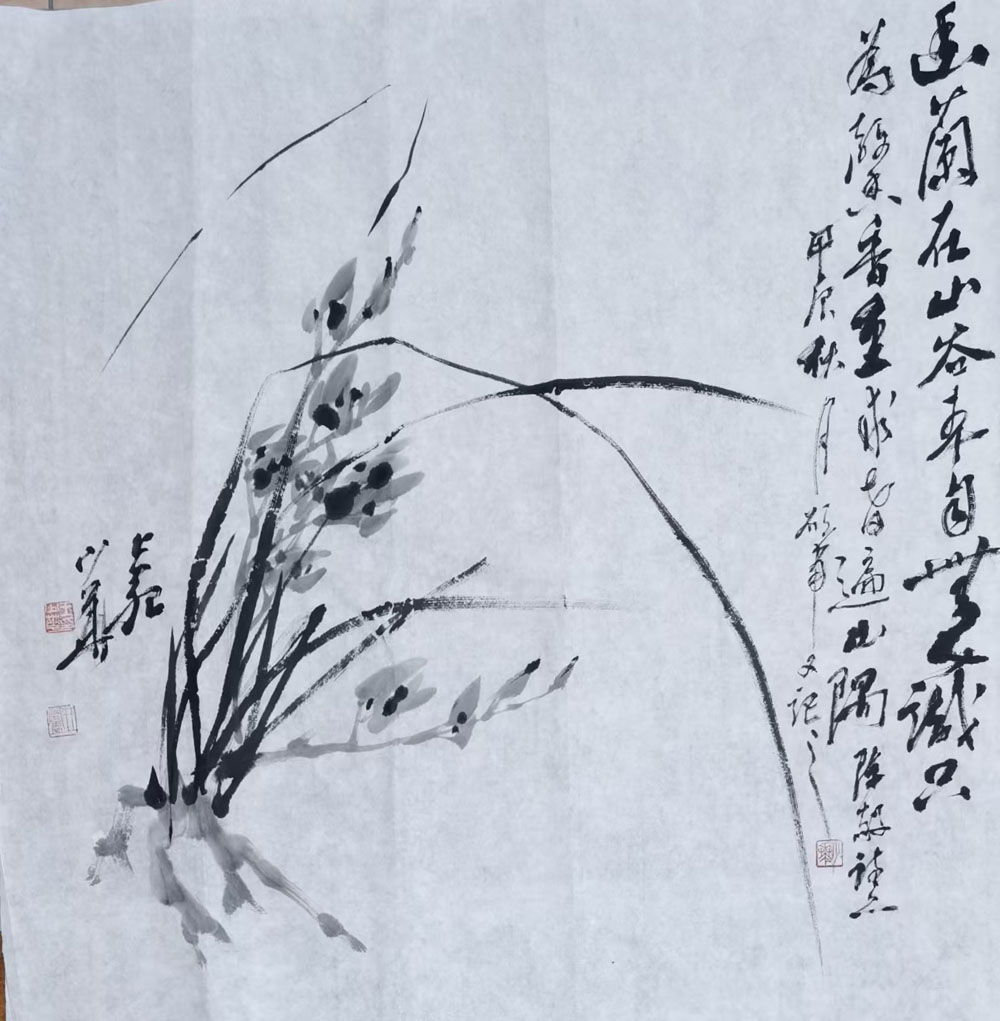 幽蘭在山谷本自無人識只
為馨香重求者遍山隅陳毅詩
甲辰秋月 又記之